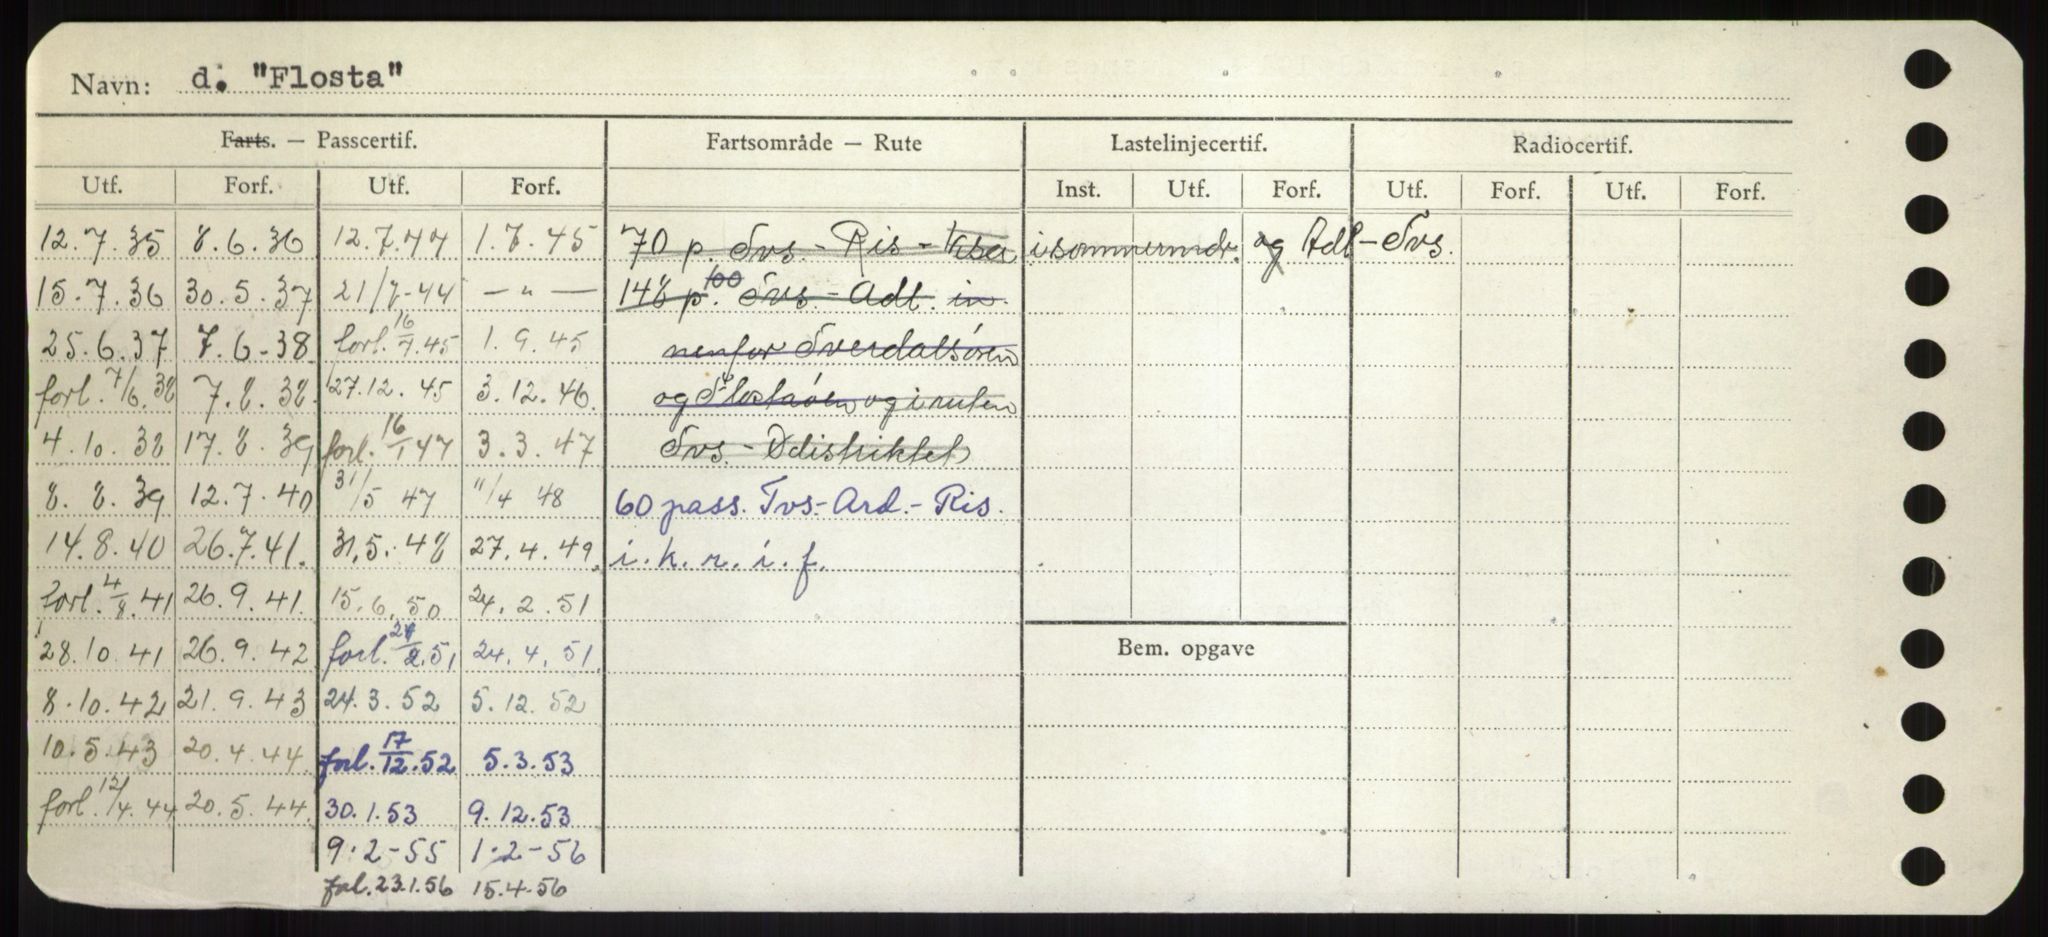 Navn: d. "Flosta"
Farts. — Passcertif. Fartsområde — Rute Lastelinjecertif. Radiocertif.
Utf. Forf. Utf. Forf. Inst. Utf. Forf. Utf. Forf. Utf. Forf.
12.7.35 8.6.36 12.7.44 1.8.45 70 p. Tvs. - Ris - i sommermdr. og Adl - Tvs.
15.7.36 30.5.37 21/8-44 — " — 148 p. 100 Tvs. - Adl. in
25.6.37 7.6.38 forl. 16/7.45 1.9.45 nenfor Sverdalsöen
forl. 7/6.38 7.8.38. 27.12.45 3.12.46. og Flostaöen og i ruten
4.10.38 17.8.39 forl. 16/1 47 3.3.47 Tvs. - Ddistriktet
8.8.39 12.7.40 31/5 47 11/4 48 60 pass. Tvs.-Ard.-Ris.
14.8.40 26.7.41. 31.5.48 27.4.49. i.k.r.i.f.
forl. 4/8.41 26.9.41. 15.6.50 24.2.51
28.10.41 26.9.42 forl. 24/2.51 24.4.51. Bem. opgave
8.10.42 21.9.43 24.3.52 5.12.52
10.5.43 20.4.44 forl. 17/12.52 5.3.53
forl. 12/4.44 20.5.44. 30.1.53 9.12.53
9.2-55 1.2-56
fol. 23.1.56 15.4.56